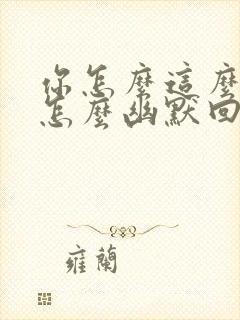 你怎麼這麼
怎麼幽默回
雍蘭